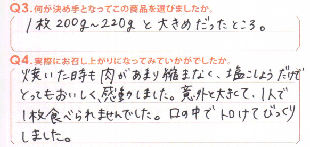 Q3.何が決め手となってこの商品を選びましたか。
1枚200g〜220gと大きめだったところ。
Q4.実際にお召し上がりになってみていかがでしたか。
焼いた時も肉があまり縮まなく、塩こしょうだけで
とってもおいしく、感動しました。意外と大きくて、1人で
1枚食べられませんでした。口の中でトロけてびっくり
しました。